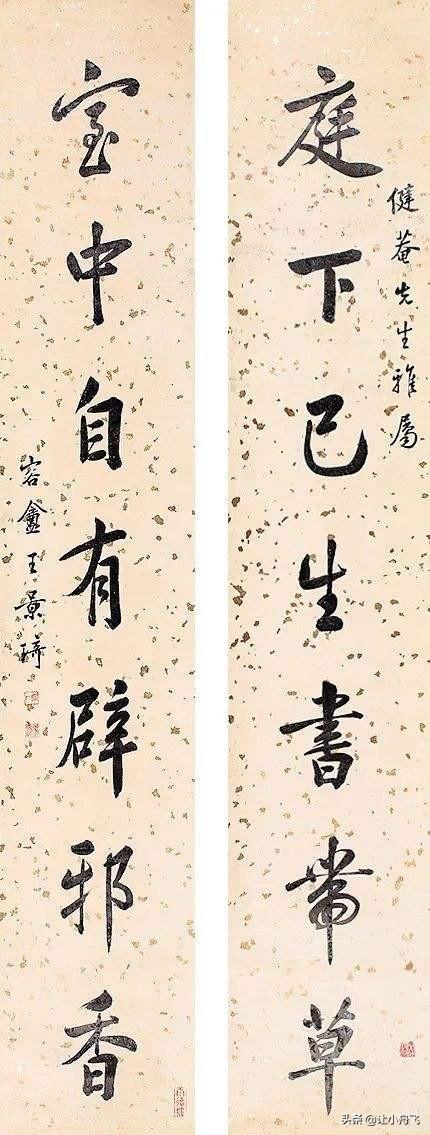 庭下已生書帶草
健菴先生雅屬
室中自有辟邪香
容盦王景琦
头条 @让小舟飞